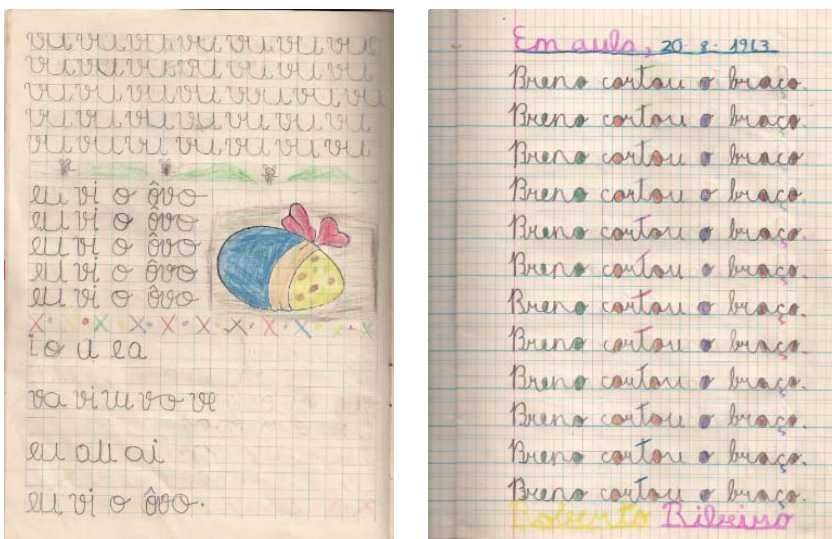 vu vu vu vu vu vu vu
vu vu vu vu vu vu vu
vu vu vu vu vu vu vu
vu vu vu vu vu vu vu
vu vu vu vu vu vu vu
eu vi o ôvo
eu vi o ôvo
eu vi o ôvo
eu vi o ôvo
eu vi o ôvo
i o u e a
va vi vu vo ve
eu au ai
eu vi o ôvo.
Em aula, 20-8-1963
Breno cortou o braço.
Breno cortou o braço.
Breno cortou o braço.
Breno cortou o braço.
Breno cortou o braço.
Breno cortou o braço.
Breno cortou o braço.
Breno cortou o braço.
Breno cortou o braço.
Breno cortou o braço.
Breno cortou o braço.
Breno cortou o braço.
Roberto Ribeiro